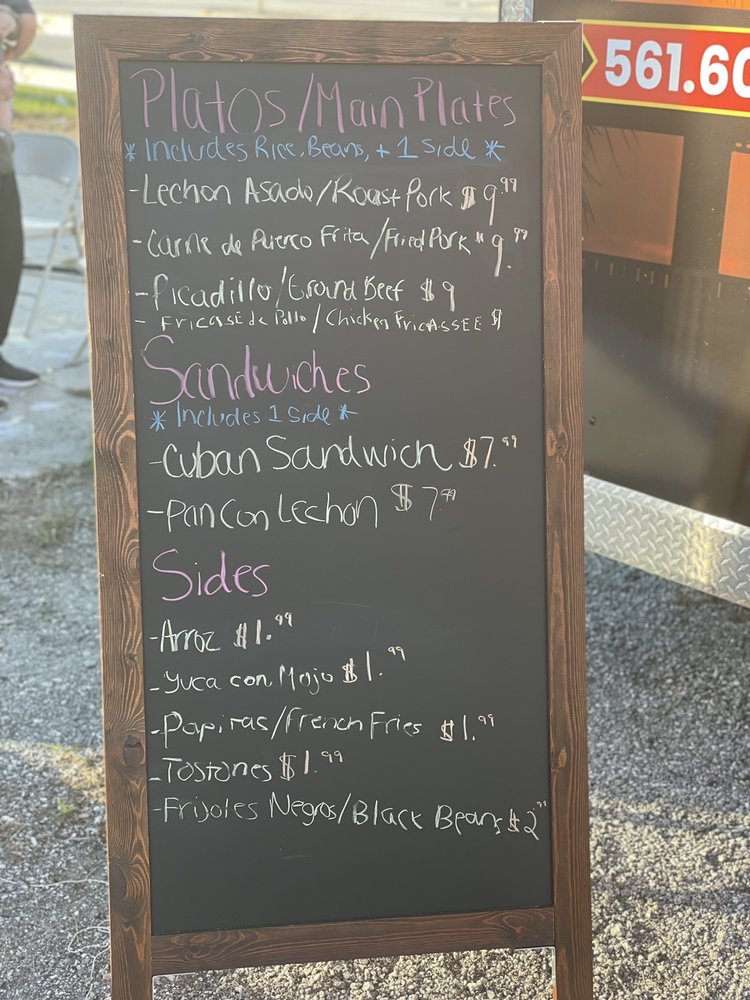 561.60
Platos/Main Plates
* Includes Rice, Beans, + 1 Side *
- Lechon Asado/Roast Pork $9.99
- Carne de Puerco Frita/Fried Pork $9.99
- Picadillo/Ground Beef $9
- Fricase de Pollo/Chicken Fricassee $
Sandwiches
* Includes 1 Side *
- Cuban Sandwich $7.99
- Pan Con Lechon $7.99
Sides
- Arroz $1.99
- Yuca con Mojo $1.99
- Papitas/French Fries $1.99
- Tostones $1.99
- Frijoles Negros/Black Beans $2.99